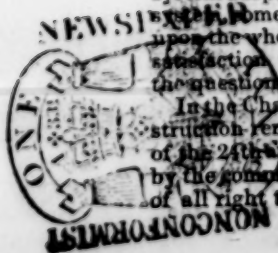 NEWS
ONE
NONCONFORMIST
upon the who
satisfaction
the question
In the Ch
struction ren
of the 24th
by the
of all right t